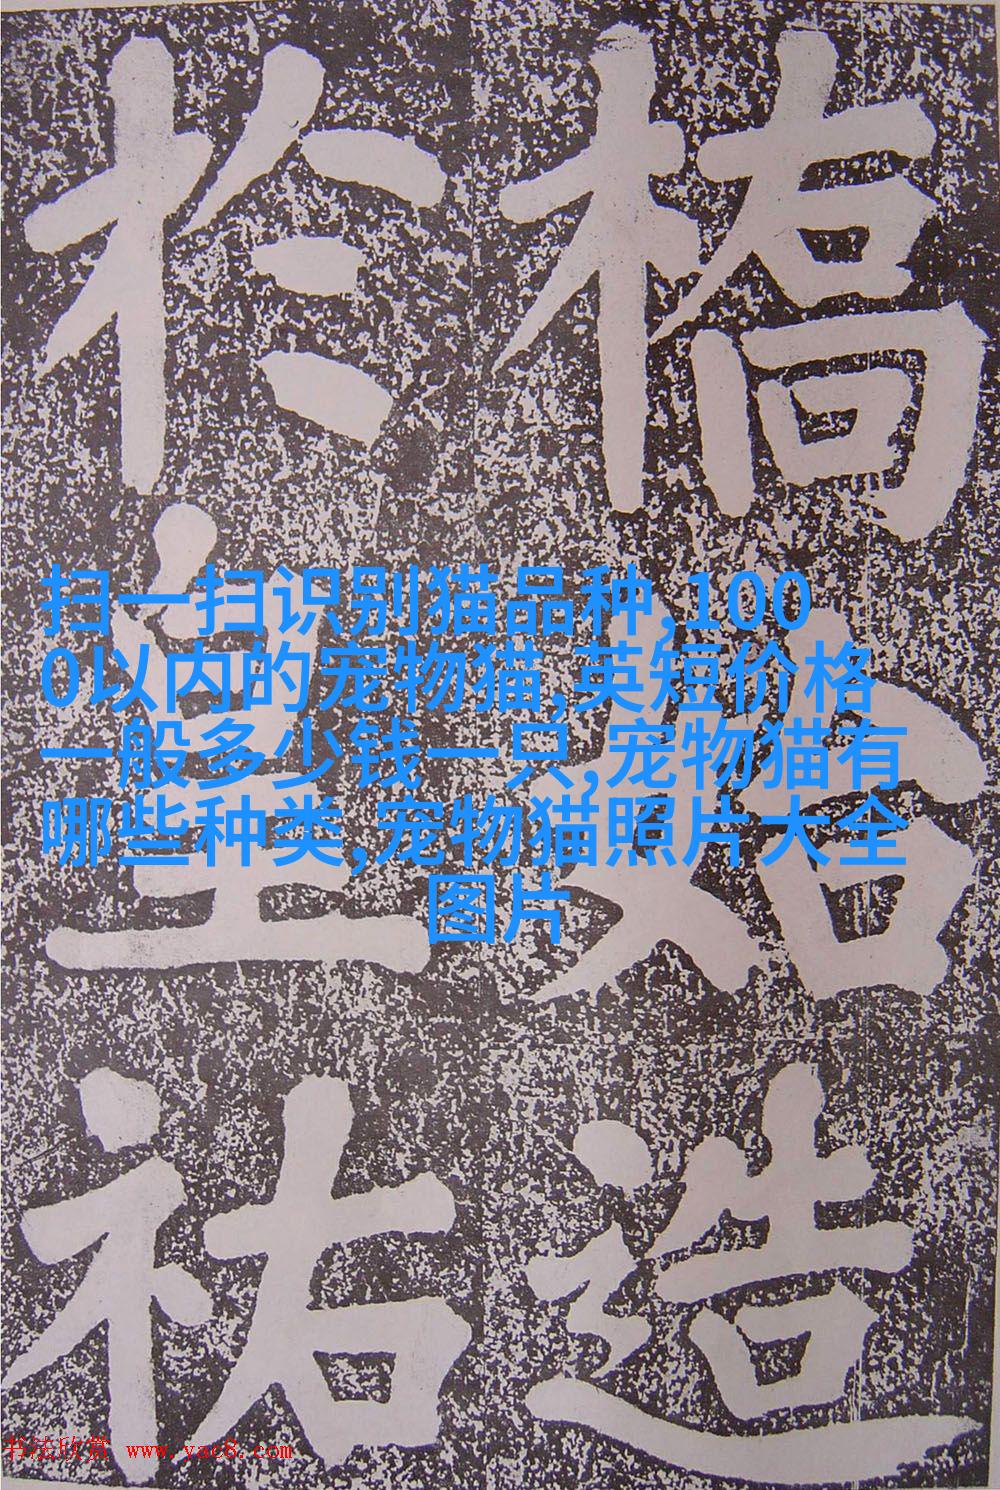 橋始造
於皇祐
扫一扫识别猫品种,100
0以内的宠物猫,英短价格
一般多少钱一只,宠物猫有
哪些种类,宠物猫照片大全
图片
书法欣赏 www.yac8.com